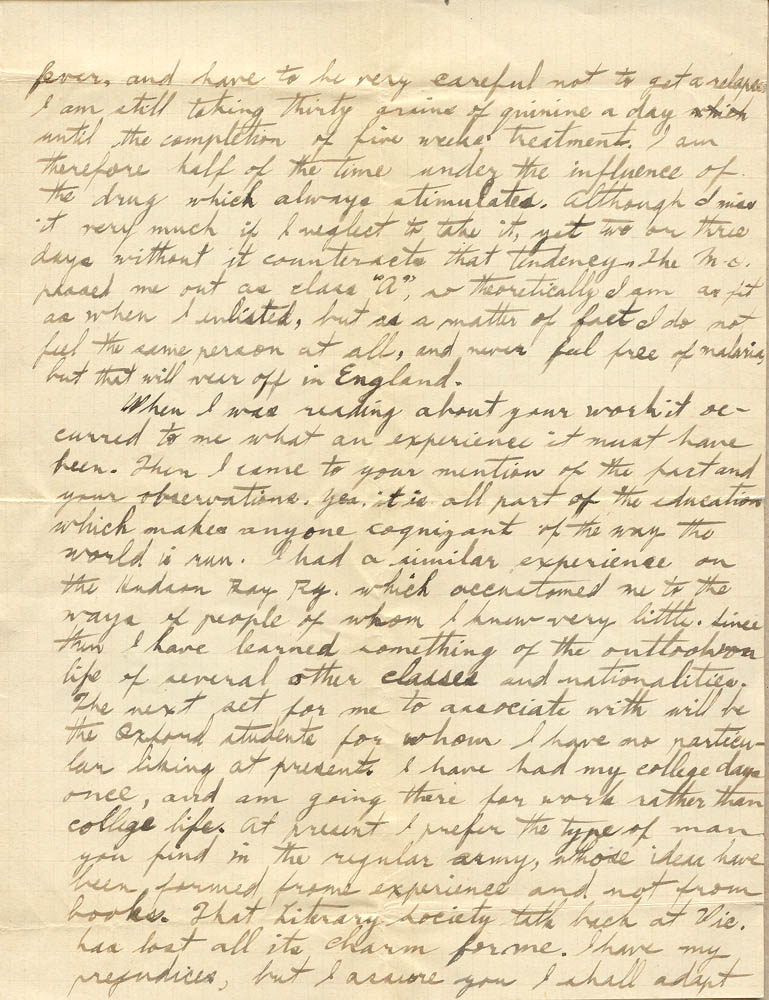 fever, and have to be very careful not to get a relapse
I am still taking thirty grains of quinine a day which
until the completion of five weeks' treatment. I am
therefore half of the time under the influence of
the drug which always stimulates. Although I miss
it very much if I neglect to take it, yet two or three
days without it counteracts that tendency. The M.O.
passed me out as class "A", so theoretically I am as fit
as when I enlisted, but as a matter of fact I do not
feel the same person at all, and never feel free of malaria,
but that will wear off in England.
When I was reading about your work it oc-
curred to me what an experience it must have
been. Then I came to your mention of the fact and
your observations. Yes, it is all part of the education
which makes anyone cognizant of the way the
world is run. I had a similar experience on
the Hudson Bay Ry. which accustomed me to the
ways of people of whom I knew very little. Since
then I have learned something of the outlook on
life of several other classes and nationalities.
The next set for me to associate with will be
the Oxford students for whom I have no particu-
lar liking at present. I have had my college days
once, and am going there for work rather than
college life. At present I prefer the type of man
you find in the regular army, whose ideas have
been formed from experience and not from
books. That Literary Society talk back at Vic.
has lost all its charm for me. I have my
prejudices, but I assure you I shall adapt